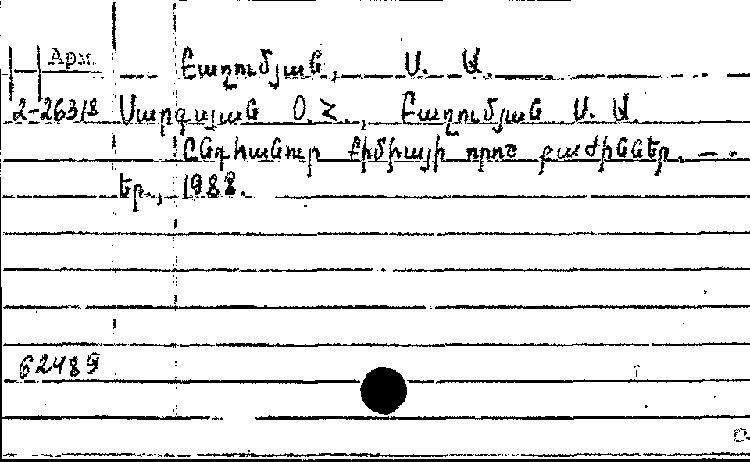 Арм. Քաղումյան, Ս. Ա.
2-26318 Սարգսյան Օ. Հ., Քաղումյան Ս. Ա.
Ընդհանուր քիմիայի որոշ բաժիններ. —
Եր., 1988.
62489